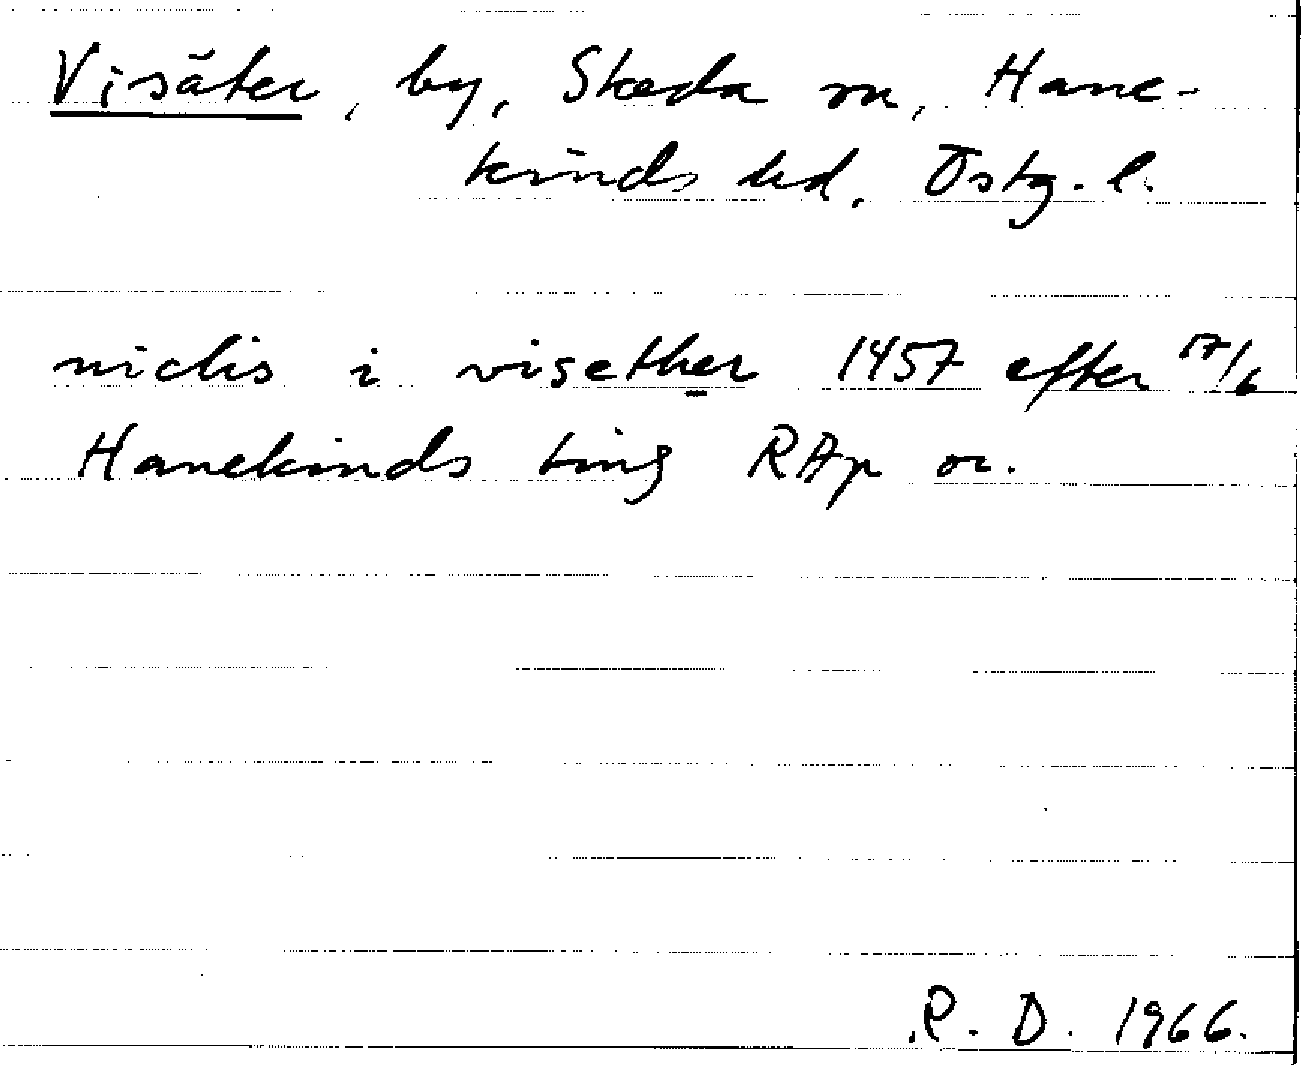 Visäter, by, Skeda sn, Hane-
kinds hd. Östg. l.
niclis i visether 1457 efter 17/6
Hanekinds ting RAp or.
R. D. 1966.